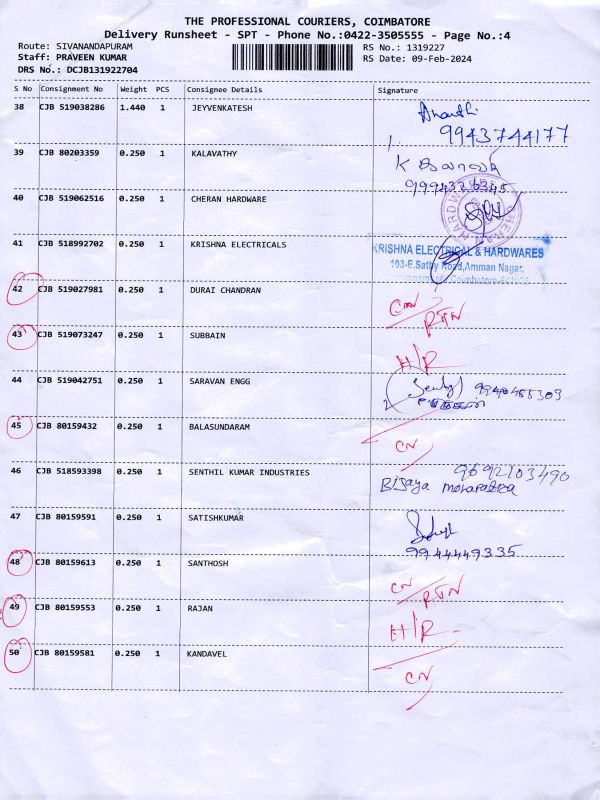 THE PROFESSIONAL COURIERS, COIMBATORE
Delivery Runsheet - SPT - Phone No.:0422-3505555 - Page No.:4
Route: SIVANANDAPURAM
RS No.: 1319227
Staff: PRAVEEN KUMAR
RS Date: 09-Feb-2024
DRS No.: DCJB131922704
S No Consignment No Weight PCS Consignee Details Signature
38 CJB 519038286 1.440 1 JEYVENKATESH
9943744177
39 CJB 80203359 0.250 1 KALAVATHY
K
40 CJB 519062516 0.250 1 CHERAN HARDWARE
41 CJB 518992702 0.250 1 KRISHNA ELECTRICALS
KRISHNA ELECTRICAL & HARDWARES
103-E, Sathy Road, Amman Nagar,
42 CJB 519027981 0.250 1 DURAI CHANDRAN
RTN
43 CJB 519073247 0.250 1 SUBBAIN
H/R
44 CJB 519042751 0.250 1 SARAVAN ENGG
45 CJB 80159432 0.250 1 BALASUNDARAM
CN
46 CJB 518593398 0.250 1 SENTHIL KUMAR INDUSTRIES
9692103490
Bijaya mohapatra
47 CJB 80159591 0.250 1 SATISHKUMAR
9944449335
48 CJB 80159613 0.250 1 SANTHOSH
CN
RTN
49 CJB 80159553 0.250 1 RAJAN
H/R
50 CJB 80159581 0.250 1 KANDAVEL
CN